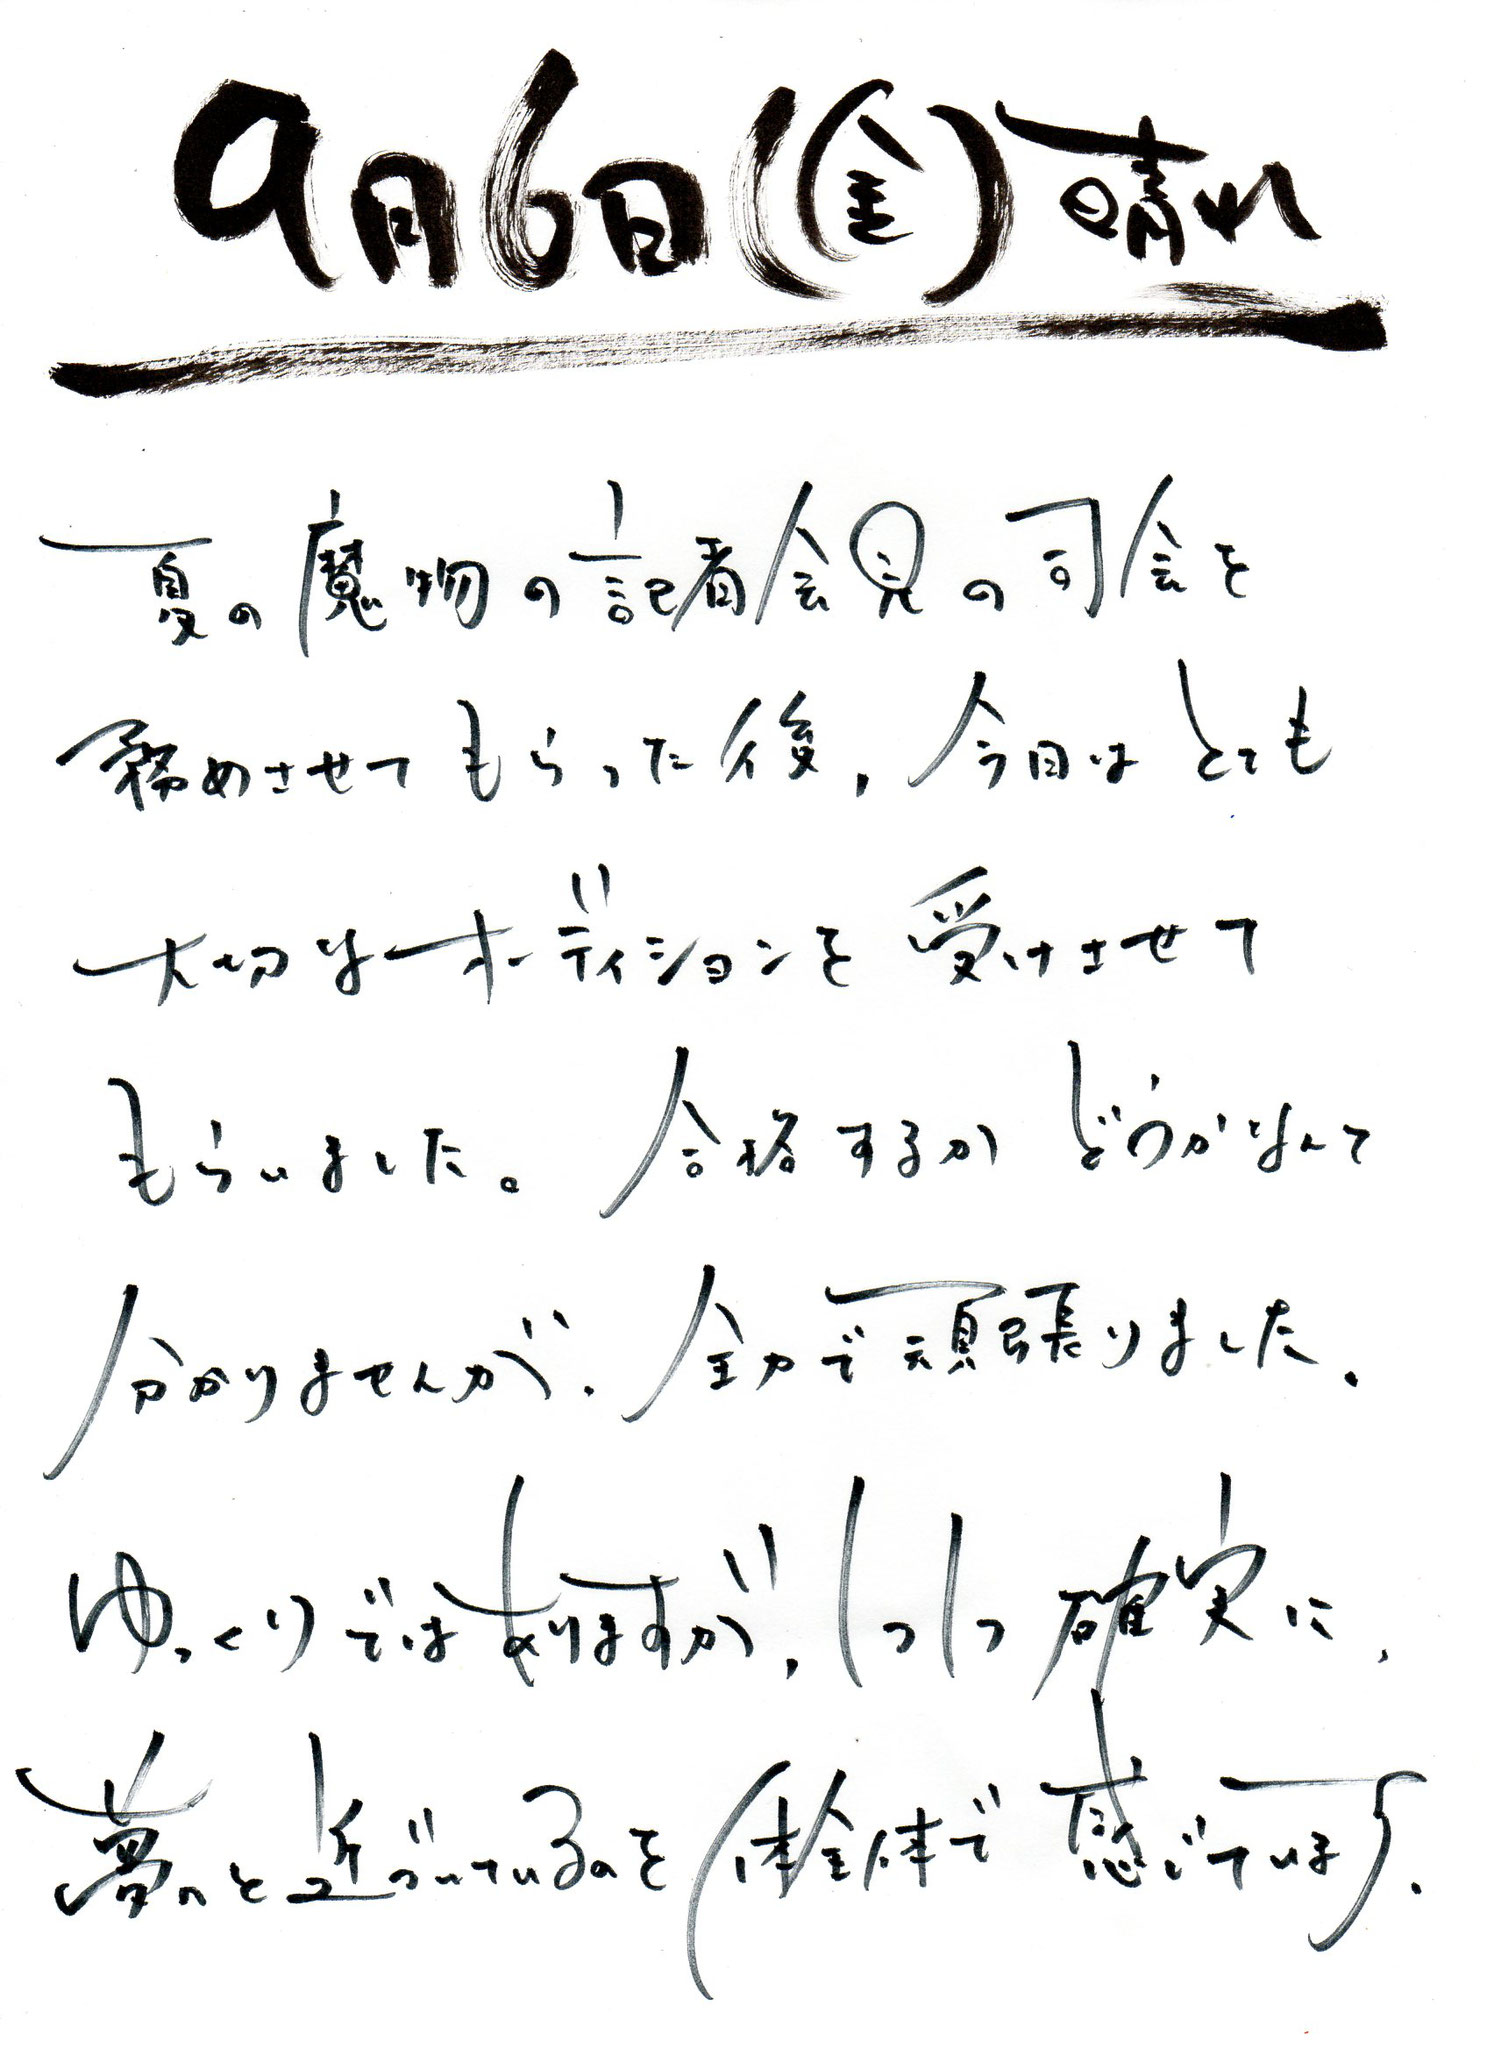 9月6日(金)晴れ
夏の魔物の記者会見の司会を
務めさせてもらった後、今日はとても
大切なオーディションを受けさせて
もらいました。合格するかどうかなんて
分かりませんが、全力で頑張りました。
ゆっくりではありますが、1つ1つ確実に、
夢へと近づいているのを体全体で感じています。